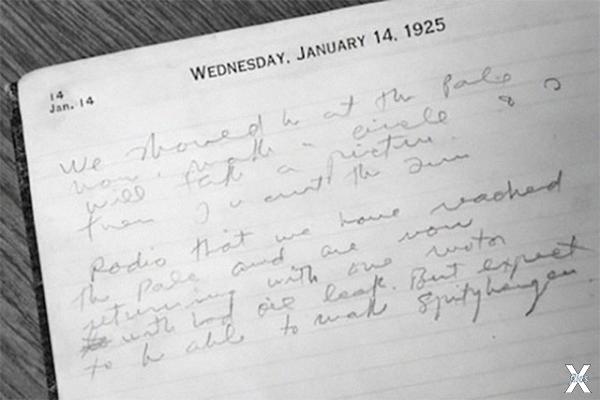 WEDNESDAY, JANUARY 14, 1925
14
Jan. 14
We should be at the Pole
now. make a circle &
will take a picture.
Then I want the Sun
Radio that we have reached
the pole and are now
returning with one motor
with bad oil leak. But expect
to be able to make Spitzbergen
X